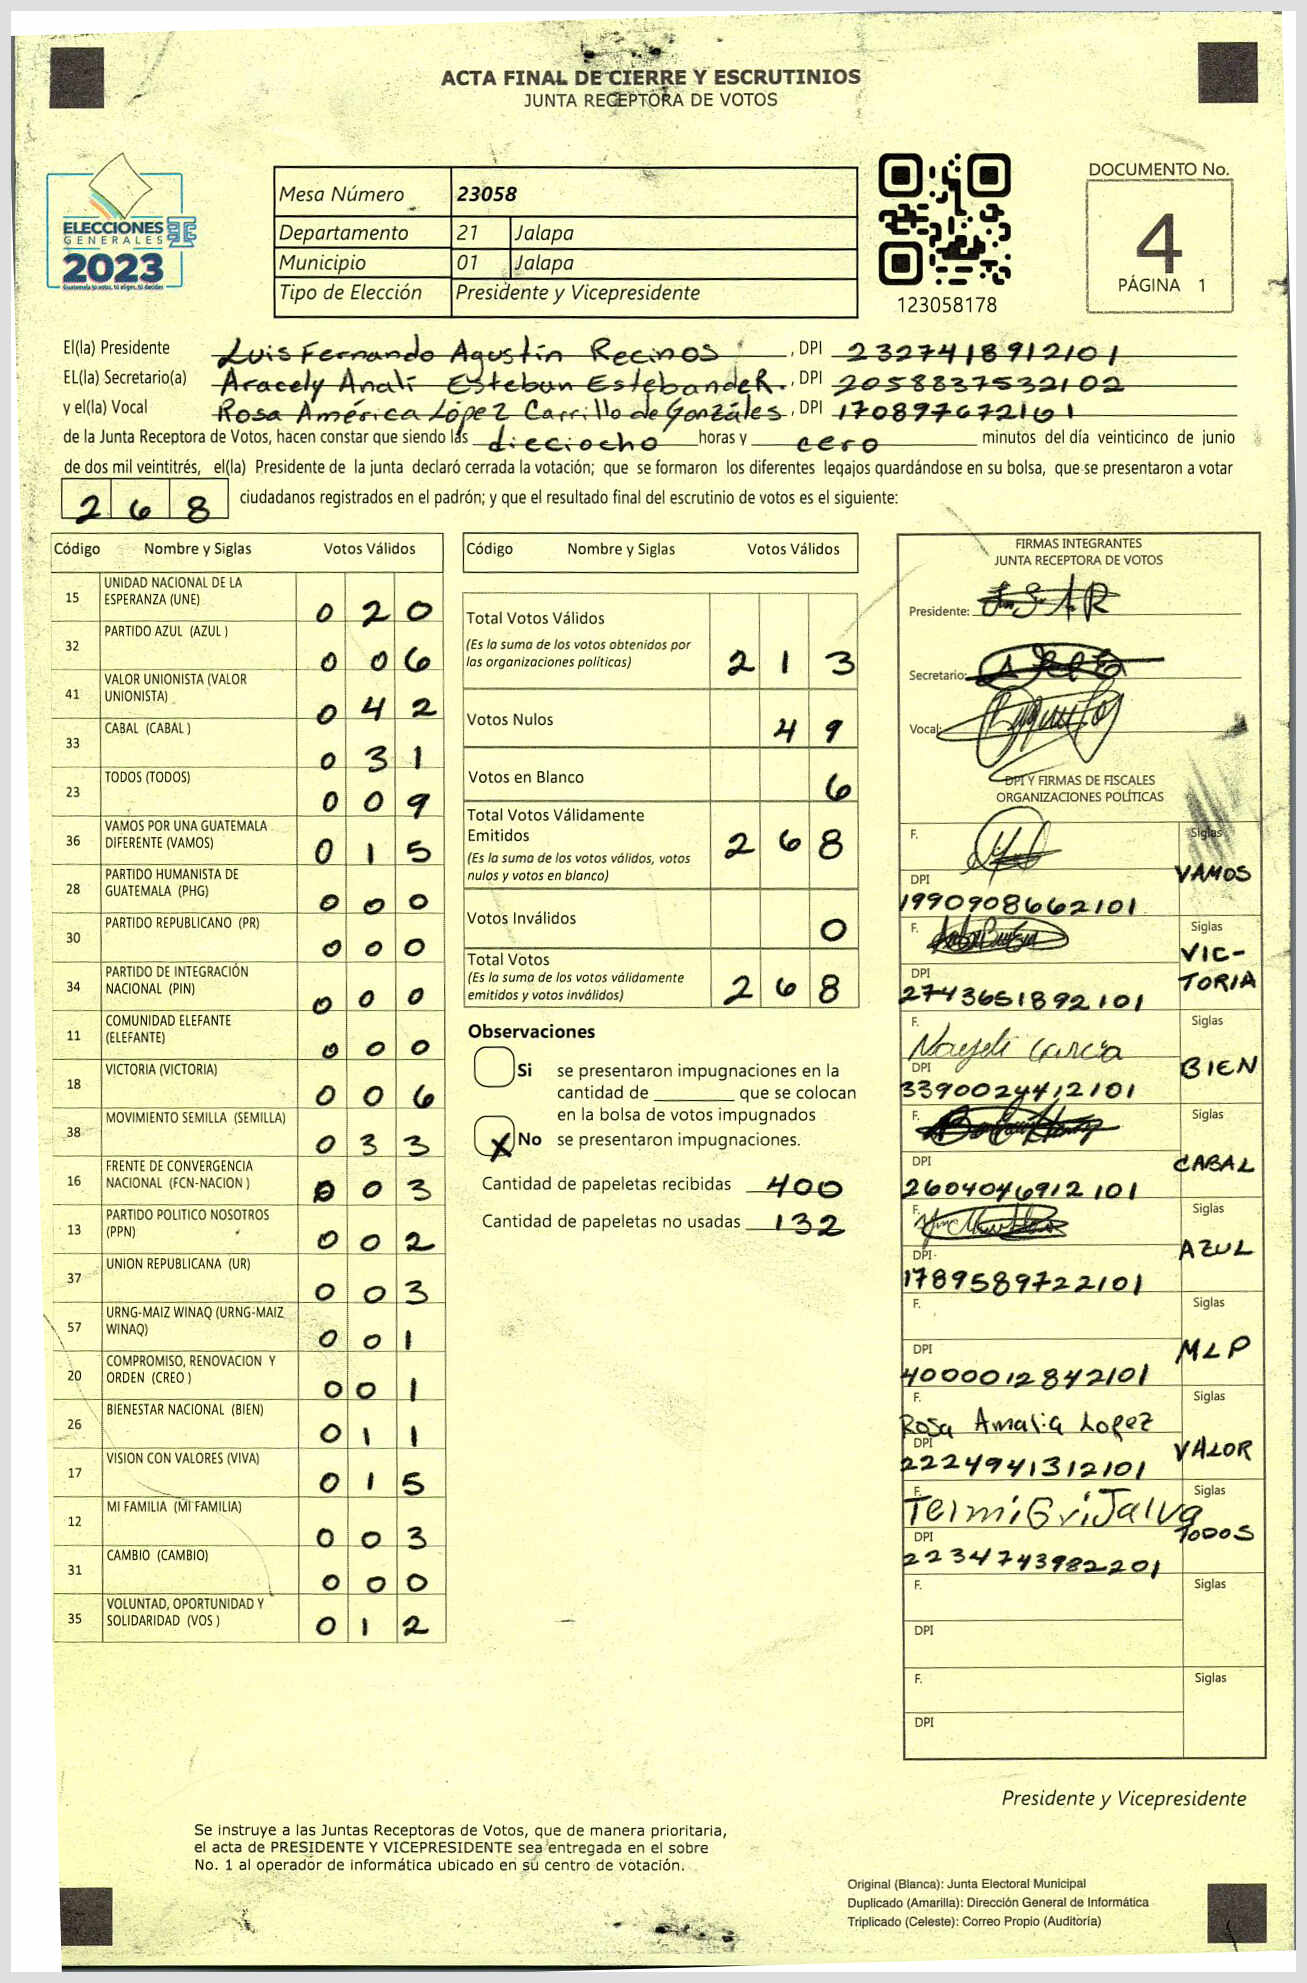 ACTA FINAL DE CIERRE Y ESCRUTINIOS
JUNTA RECEPTORA DE VOTOS
ELECCIONES
GENERALES
2023
Guatemala tú votas, tú eliges, tú decides
Mesa Número 23058
Departamento 21 Jalapa
Municipio 01 Jalapa
Tipo de Elección Presidente y Vicepresidente
123058178
DOCUMENTO No.
4
PÁGINA 1
El(la) Presidente Luis Fernando Agustín Recinos, DPI 2327418912101
EL(la) Secretario(a) Aracely Analí Esteban Estebande R., DPI 2058837532102
y el(la) Vocal Rosa América López Carrillo de Gonzáles, DPI 170897672101
de la Junta Receptora de Votos, hacen constar que siendo las dieciocho horas y cero minutos del día veinticinco de junio
de dos mil veintitrés, el(la) Presidente de la junta declaró cerrada la votación; que se formaron los diferentes legajos guardándose en su bolsa, que se presentaron a votar
268 ciudadanos registrados en el padrón; y que el resultado final del escrutinio de votos es el siguiente:
Código Nombre y Siglas Votos Válidos
15 UNIDAD NACIONAL DE LA ESPERANZA (UNE) 020
32 PARTIDO AZUL (AZUL ) 006
41 VALOR UNIONISTA (VALOR UNIONISTA) 042
33 CABAL (CABAL ) 031
23 TODOS (TODOS) 009
36 VAMOS POR UNA GUATEMALA DIFERENTE (VAMOS) 015
28 PARTIDO HUMANISTA DE GUATEMALA (PHG) 000
30 PARTIDO REPUBLICANO (PR) 000
34 PARTIDO DE INTEGRACIÓN NACIONAL (PIN) 000
11 COMUNIDAD ELEFANTE (ELEFANTE) 000
18 VICTORIA (VICTORIA) 006
38 MOVIMIENTO SEMILLA (SEMILLA) 033
16 FRENTE DE CONVERGENCIA NACIONAL (FCN-NACION ) 003
13 PARTIDO POLITICO NOSOTROS (PPN) 002
37 UNION REPUBLICANA (UR) 003
57 URNG-MAIZ WINAQ (URNG-MAIZ WINAQ) 001
20 COMPROMISO, RENOVACION Y ORDEN (CREO ) 001
26 BIENESTAR NACIONAL (BIEN) 011
17 VISION CON VALORES (VIVA) 015
12 MI FAMILIA (MI FAMILIA) 003
31 CAMBIO (CAMBIO) 000
35 VOLUNTAD, OPORTUNIDAD Y SOLIDARIDAD (VOS ) 012
Código Nombre y Siglas Votos Válidos
Total Votos Válidos
(Es la suma de los votos obtenidos por
las organizaciones políticas) 213
Votos Nulos 49
Votos en Blanco 6
Total Votos Válidamente
Emitidos
(Es la suma de los votos válidos, votos
nulos y votos en blanco) 268
Votos Inválidos 0
Total Votos
(Es la suma de los votos válidamente
emitidos y votos inválidos) 268
Observaciones
Si se presentaron impugnaciones en la
cantidad de ________ que se colocan
en la bolsa de votos impugnados
X No se presentaron impugnaciones.
Cantidad de papeletas recibidas 400
Cantidad de papeletas no usadas 132
FIRMAS INTEGRANTES
JUNTA RECEPTORA DE VOTOS
Presidente:
Secretario:
Vocal:
DPI Y FIRMAS DE FISCALES
ORGANIZACIONES POLÍTICAS
F. Siglas
VAMOS
DPI
1990908662101
F. Siglas
VIC-
TORIA
DPI
2743651892101
F. Siglas
Nayeli García
BIEN
DPI
3390024412101
F. Siglas
CABAL
DPI
2604046912101
F. Siglas
AZUL
DPI
1789589722101
F. Siglas
MLP
DPI
4000012842101
F. Siglas
Rosa Amalia Lopez
VALOR
DPI
2224941312101
F. Siglas
Telmi GriJalva
TODOS
DPI
2234743982201
F. Siglas
DPI
F. Siglas
DPI
Presidente y Vicepresidente
Se instruye a las Juntas Receptoras de Votos, que de manera prioritaria,
el acta de PRESIDENTE Y VICEPRESIDENTE sea entregada en el sobre
No. 1 al operador de informática ubicado en su centro de votación.
Original (Blanca): Junta Electoral Municipal
Duplicado (Amarilla): Dirección General de Informática
Triplicado (Celeste): Correo Propio (Auditoría)